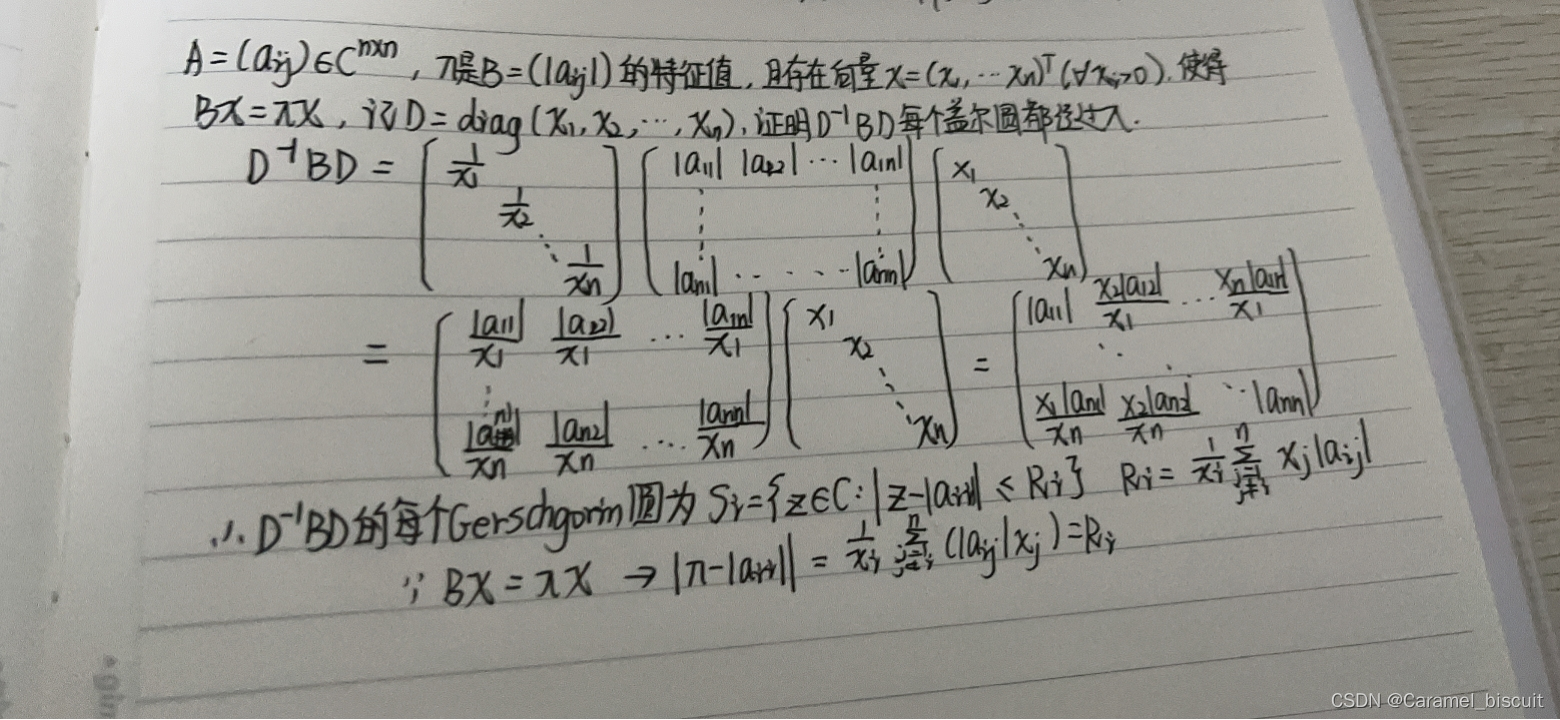 A=(aij)∈C^{n×n}, λ是B=(|aij|)的特征值,且存在向量X=(x1,…xn)^T(∀xi>0),使得
BX=λX,记D=diag(x1,x2,…,xn),证明D^{-1}BD每个盖尔圆都经过λ.
D^{-1}BD = [1/x1 1/x2 ⋱ 1/xn] [|a11| |a22| … |a1n| ⋮ ⋮ |an1| … |ann|] [x1 x2 ⋱ xn]
= [|a11|/x1 |a22|/x1 … |a1n|/x1 ⋮ |an1|/xn |an2|/xn … |ann|/xn] [x1 x2 ⋱ xn] = [|a11| x2|a12|/x1 … xn|a1n|/x1 ⋱ x1|an1|/xn x2|an2|/xn … |ann|]
∴ D^{-1}BD的每个Gerschgorin圆为 Si={z∈C:|z-|aii||≤Ri} Ri=1/xi Σ_{j=1,j≠i}^{n} xj|aij|
∵ BX=λX → |λ-|aii||=1/xi Σ_{j=1,j≠i}^{n}(|aij|xj)=Ri
CSDN @Caramel_biscuit